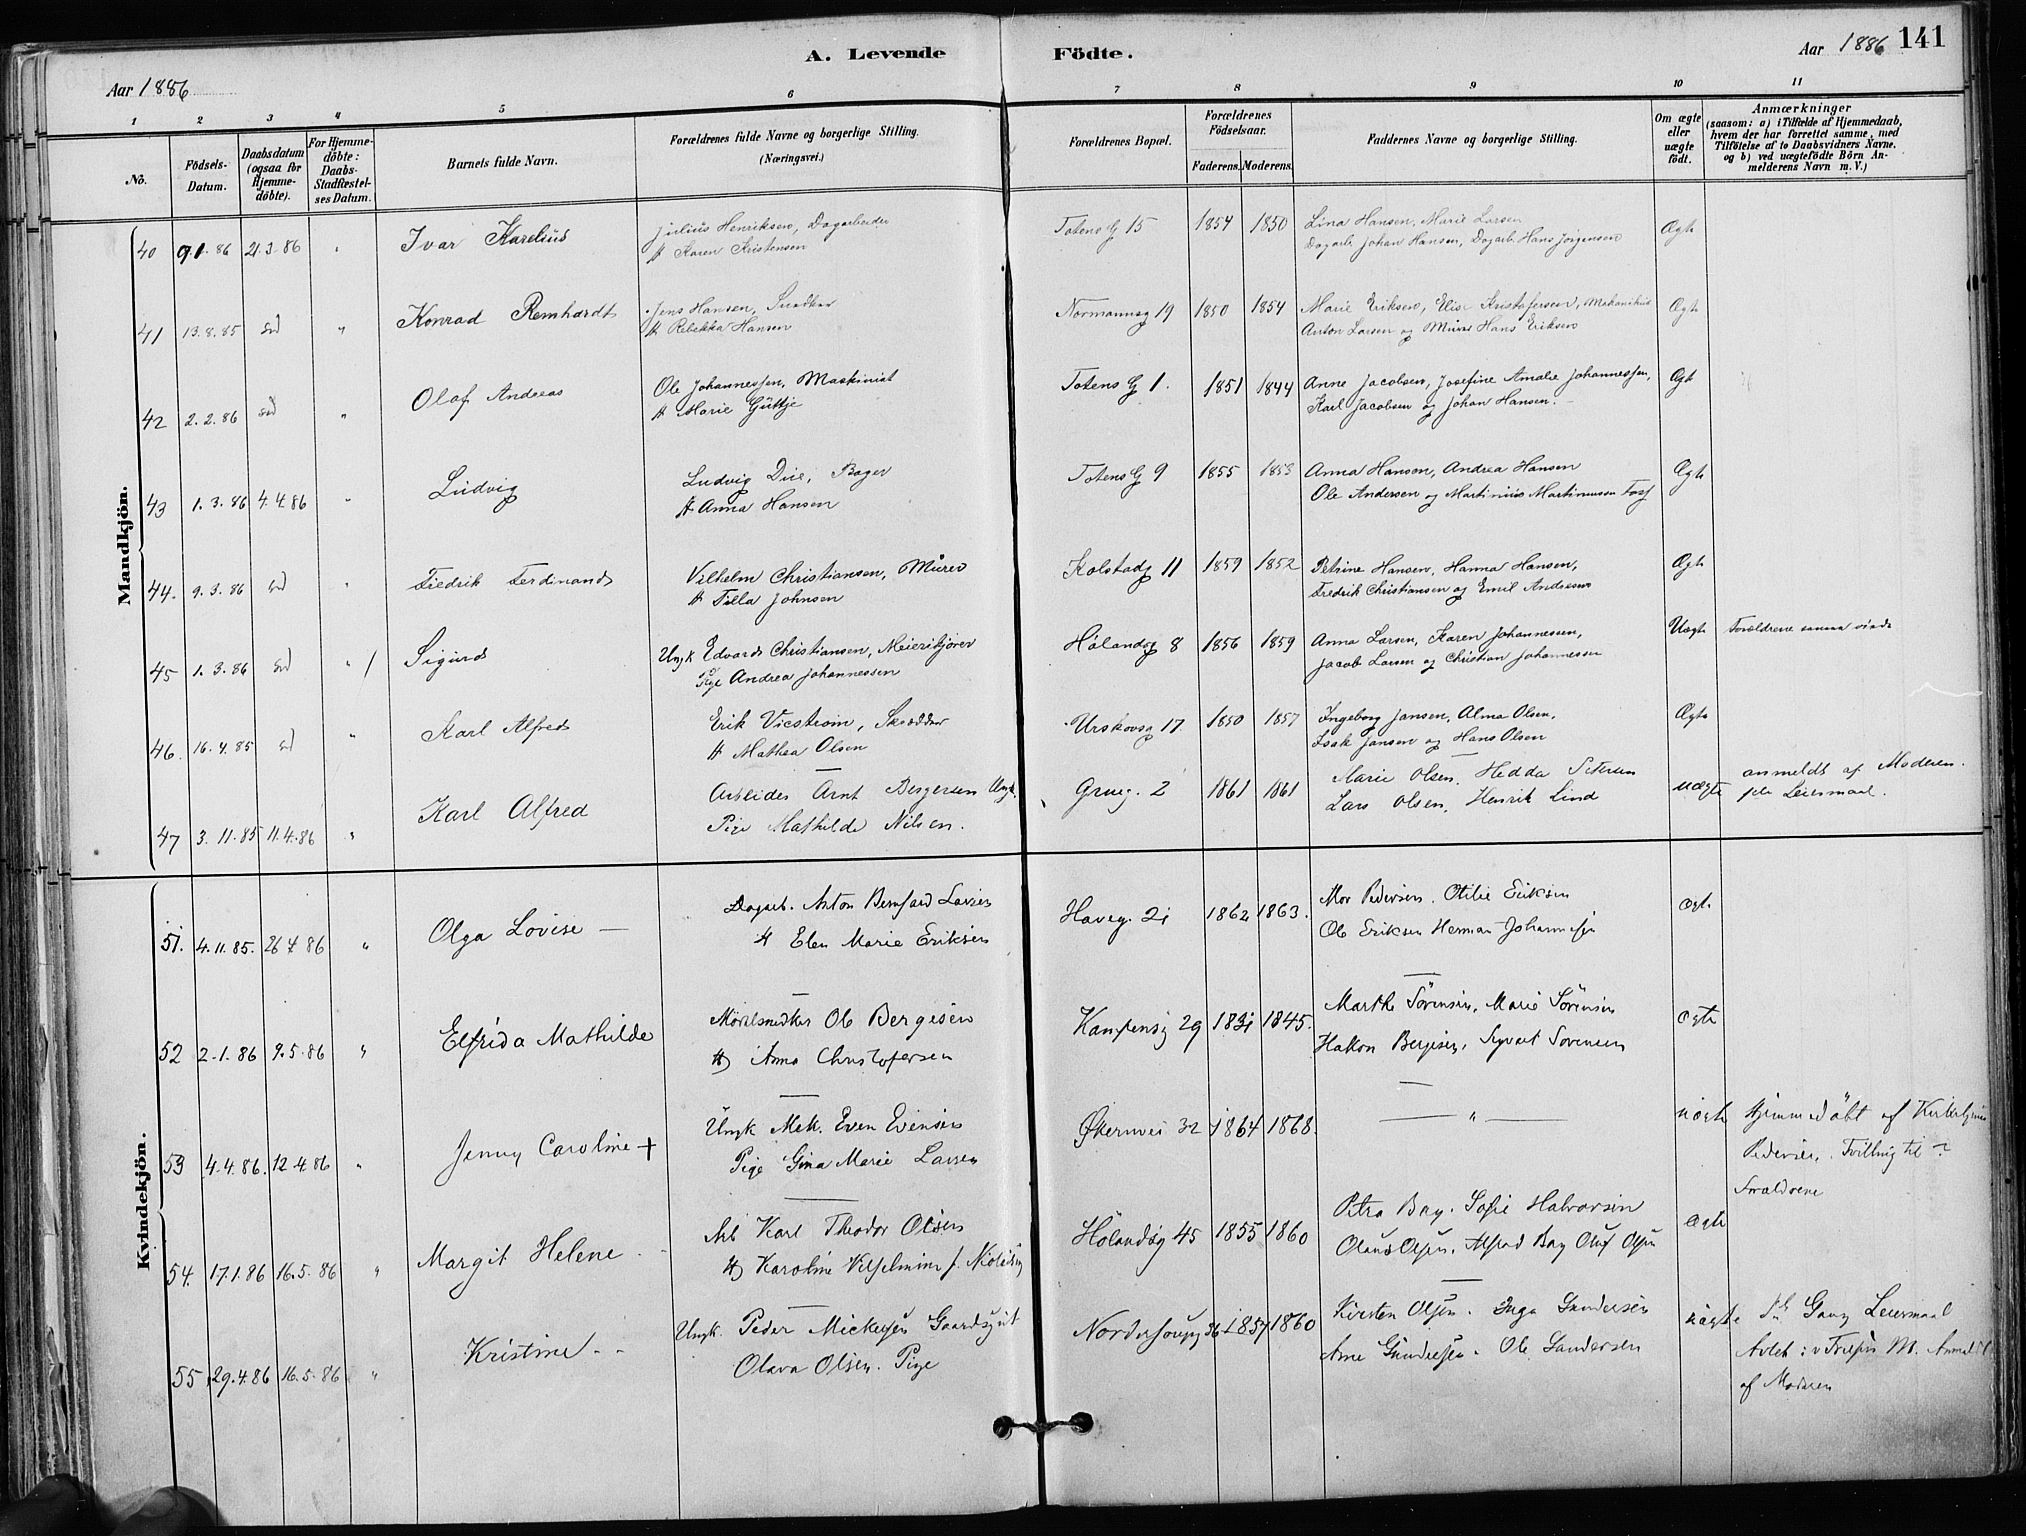 A. Levende Födte.
Aar 1886
Aar 1886 141
1 2 3 4 5 6 7 8 9 10 11
No.
Födsels-Datum.
Daabsdatum (ogsaa for Hjemmedöbte).
For Hjemmedöbte: Daabs-Stadfæstelses Datum.
Barnets fulde Navn.
Forældrenes fulde Navne og borgerlige Stilling. (Næringsvei.)
Forældrenes Bopæl.
Forældrenes Födselsaar.
Faderens. Moderens.
Faddernes Navne og borgerlige Stilling.
Om ægte eller uægte födt.
Anmærkninger (saasom: a) i Tilfælde af Hjemmedaab, hvem der har forrettet samme, med Tilföielse af to Daabsvidners Navne. og b) ved uægtefödte Börn Anmelderens Navn m. V.)
Mandkjön.
40 9.1.86 21.3.86 " Ivar Karelius Julius Henriksen, Dagarbeider Totens G 15 1854 1850 Lina Hansen, Marie Larsen Ægte
H Karen Kristensen Dagarb. Johan Hansen, Dagarb. Hans Jörgensen
41 13.8.85 " Konrad Reinhardt Jens Hansen, Snedker Normannsg 19 1850 1854 Marie Eriksen, Elise Kristofersen, Ægte
H Rebekka Hansen Anton Larsen og Murer Hans Eriksen
42 2.2.86 " Olaf Andreas Ole Johannessen, Maskinist Totens G 1. 1851 1844 Anne Jacobsen, Josefine Amalie Johannessen, Ægte
H Marie Güttje Karl Jacobsen og Johan Hansen.
43 1.3.86 4.4.86 " Ludvig Ludvig Due, Bager Totens G 9 1855 1853 Anna Hansen, Andrea Hansen Ægte
H Anna Hansen Ole Andersen og Martinius Martinussen
44. 9.3.86 " Fredrik Ferdinand Vilhelm Christiansen, Murer Kolstadg 11 1859 1852 Petrine Hansen, Hanna Hansen, Ægte
H Tilla Johnsen Fredrik Christiansen og Emil Andresen
45 1.3.86 " Sigurd Ungk Edvard Christiansen, Meierikjörer Hölandsg 8 1856 1859 Anna Larsen, Karen Johannessen, Uægte Forældrene samme
Pige Andrea Johannessen Jacob Larsen og Christian Johannessen
46. 16.4.85 " Karl Alfred Erik Vicström, Skrædder Urskovsg 17 1850 1857 Ingeborg Jansen, Alma Olsen, Ægte
H Mathea Olsen Isak Jansen og Hans Olsen
47 3.11.85 11.4.86 " Karl Alfred Arbeider Arnt Bergersen Ungk. Grueg. 2 1861 1861 Marie Olsen. Hedda Petersen uægte anmeldt af Moderen.
Pige Mathilde Nilsen. Lars Olsen. Henrik Lind Leiermaal.
Kvindekjön.
51. 4.11.85. 26 4 86 " Olga Lovise Dagarb. Anton Bernhard Larsen Haveg. 21 1862 1863. Mor Pedersen. Otilie Eriksen ægte
H Elen Marie Eriksen Ole Eriksen Herman Johannesen
52 2.1.86 9.5.86 " Elfrida Mathilde Ole Bergesen Kampensg 29 1831 1845. Marthe Sörensen, Marie Sörensen ægte
H Anna Christofersen Hakon Bergesen, Syvert Sörensen
53 4.4.86. 12 4 86 " Jenny Caroline + Ungk Mek. Even Evensen Økernvei 32 1864 1868. " uægte Hjemmedöbt af
Pige Gina Marie Larsen Pedersen. Tvilling til
Forældrene
54. 17.1.86 16.5.86 " Margit Helene Arb Karl Theodor Olsen Hölandsg 45 1855 1860 Petra Bay. Sofie Halvorsen ægte
H Karoline Vilhelmine f. Nicolaisen Olaus Olsen. Alfred Bay Oluf Olsen
55 29.4.86 16.5.86 " Kristine Ungk. Peder Mickelsen Gaardsgut 36 1857 1860 Kirsten Olsen. Inga Gundersen uægte Gang Leiermaal
Olava Olsen. Pige Arne Gundersen. Ole Gundersen
af Moderen